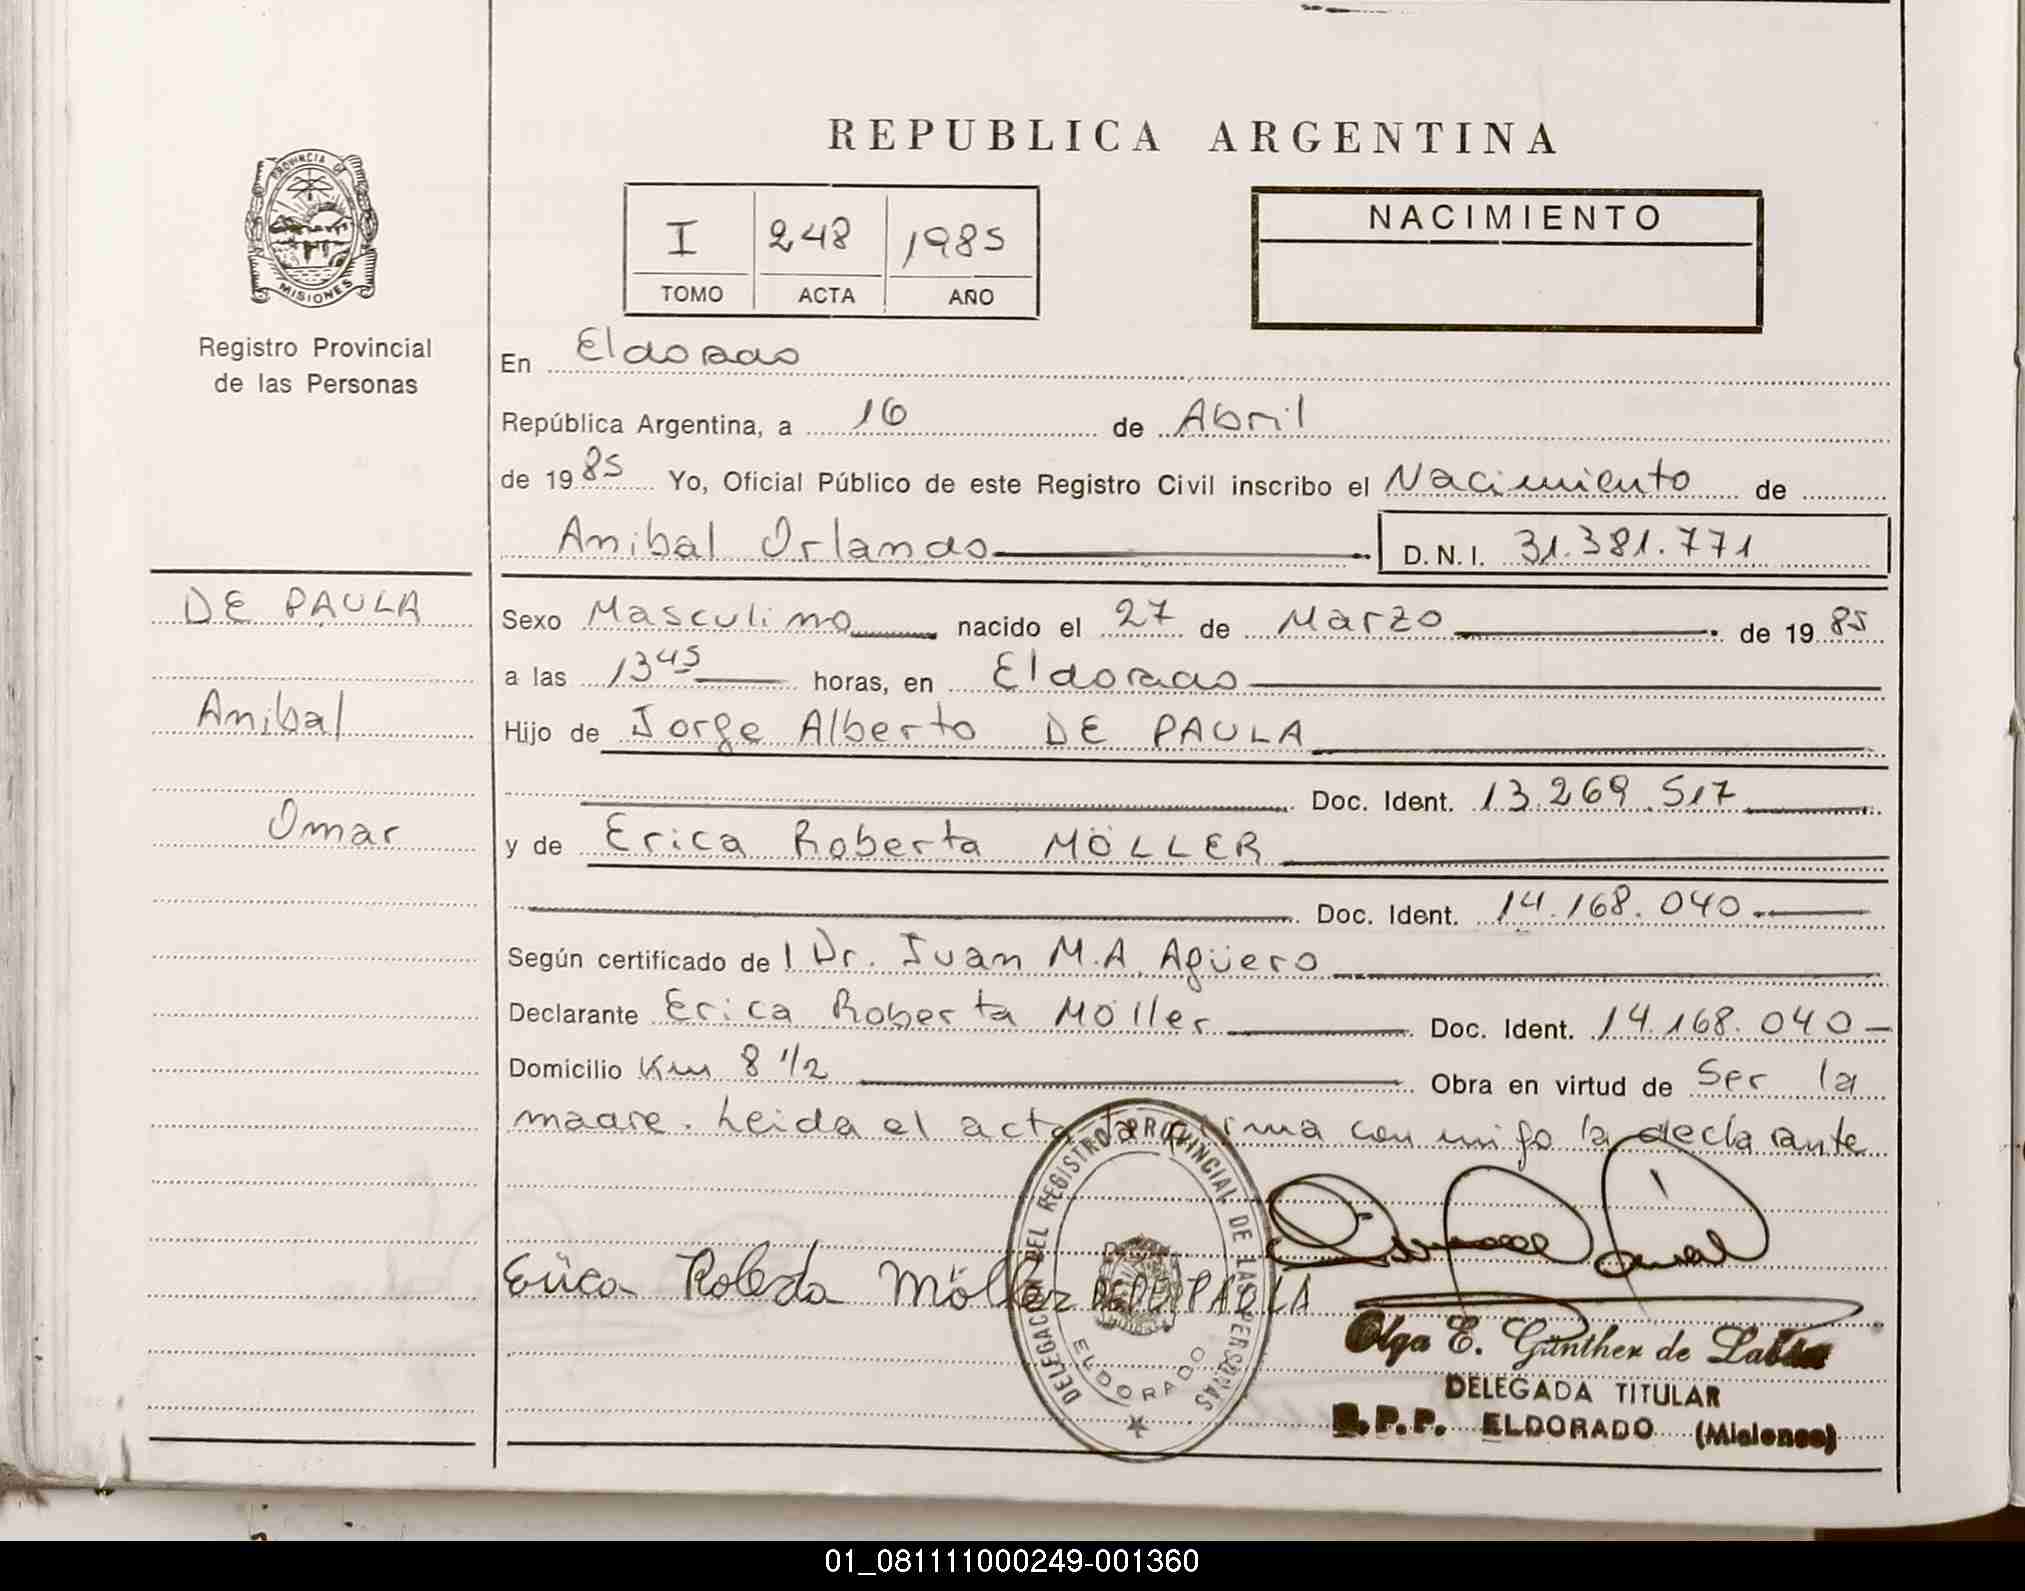 REPUBLICA ARGENTINA
PROVINCIA DE
MISIONES
Registro Provincial
de las Personas
I 248 1985
TOMO ACTA AÑO
NACIMIENTO
En Eldorado
República Argentina, a 16 de Abril
de 19 85 Yo, Oficial Público de este Registro Civil inscribo el Nacimiento de
Anibal Orlando D.N.I. 31.381.771
DE PAULA
Anibal
Omar
Sexo Masculino nacido el 27 de Marzo de 19 85
a las 13 45 horas, en Eldorado
Hijo de Jorge Alberto DE PAULA
Doc. Ident. 13.269.517
y de Erica Roberta MÖLLER
Doc. Ident. 14.168.040
Según certificado de l Dr. Juan M.A. Agüero
Declarante Erica Roberta Möller Doc. Ident. 14.168.040
Domicilio Km 8 1/2 Obra en virtud de Ser la
madre. Leida el acta la firma con migo la declarante
Erica Möller DE PAULA
DELEGACION DEL REGISTRO PROVINCIAL DE LAS PERSONAS
ELDORADO
Olga E. Günther de
DELEGADA TITULAR
R.P.P. ELDORADO (Misiones)
01_081111000249-001360